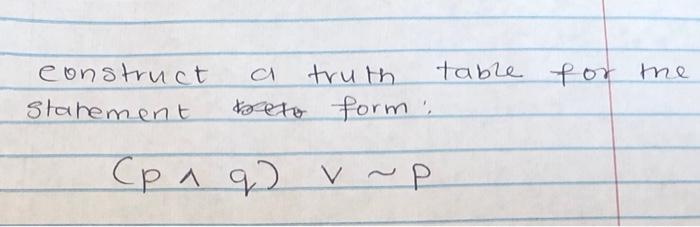 construct a truth table for the
statement form:
(p ∧ q) ∨ ~p